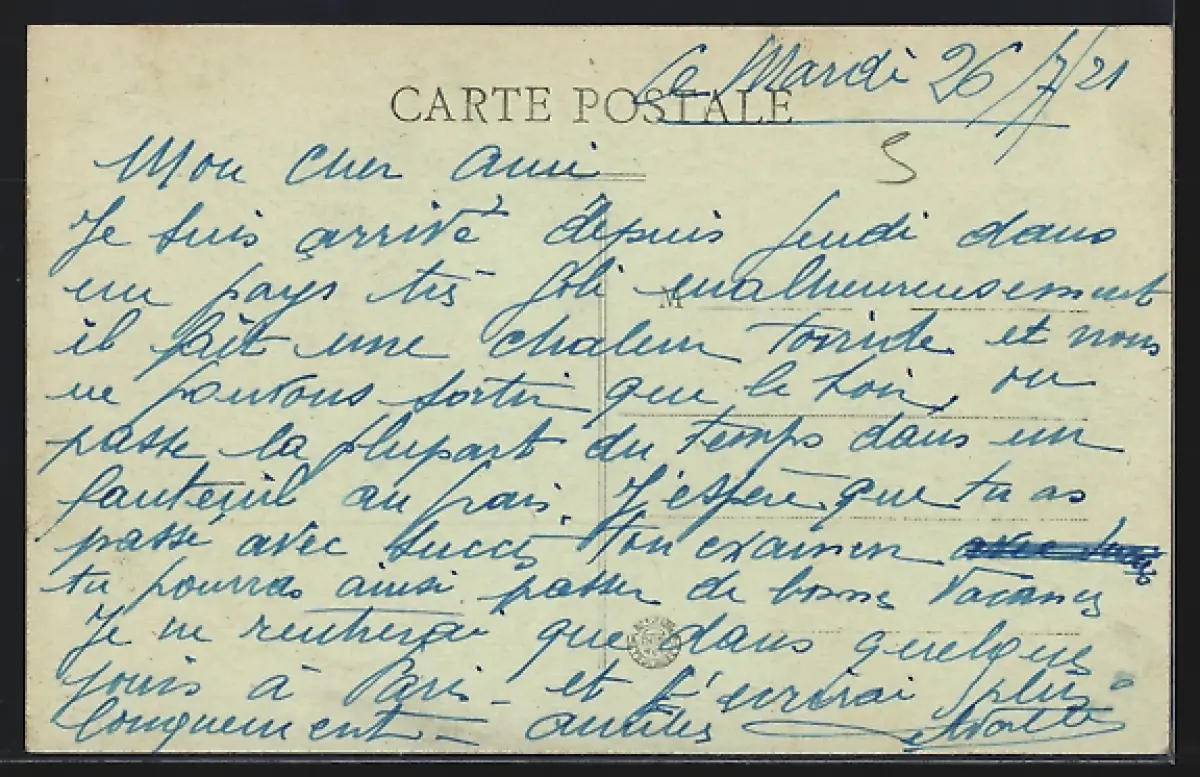 Le Mardi 26/7/21
CARTE POSTALE
Mon cher ami
Je suis arrivé depuis jeudi dans
un pays très joli malheureusement
M
il fait une chaleur torride et nous
ne pouvons sortir que le soir, on
passe la plupart du temps dans un
fauteuil au frais. J'espère que tu as
passé avec succès ton examen avec
tu pourras ainsi passer de bonnes vacances
Je ne rentrerai que dans quelques
jours à Paris - et t'écrirai plus
longuement - amitiés